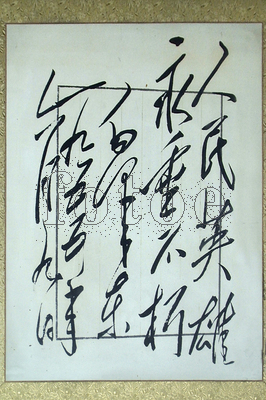 人民英雄
永垂不朽
毛泽东
一九五五年
六月九日
fotoe